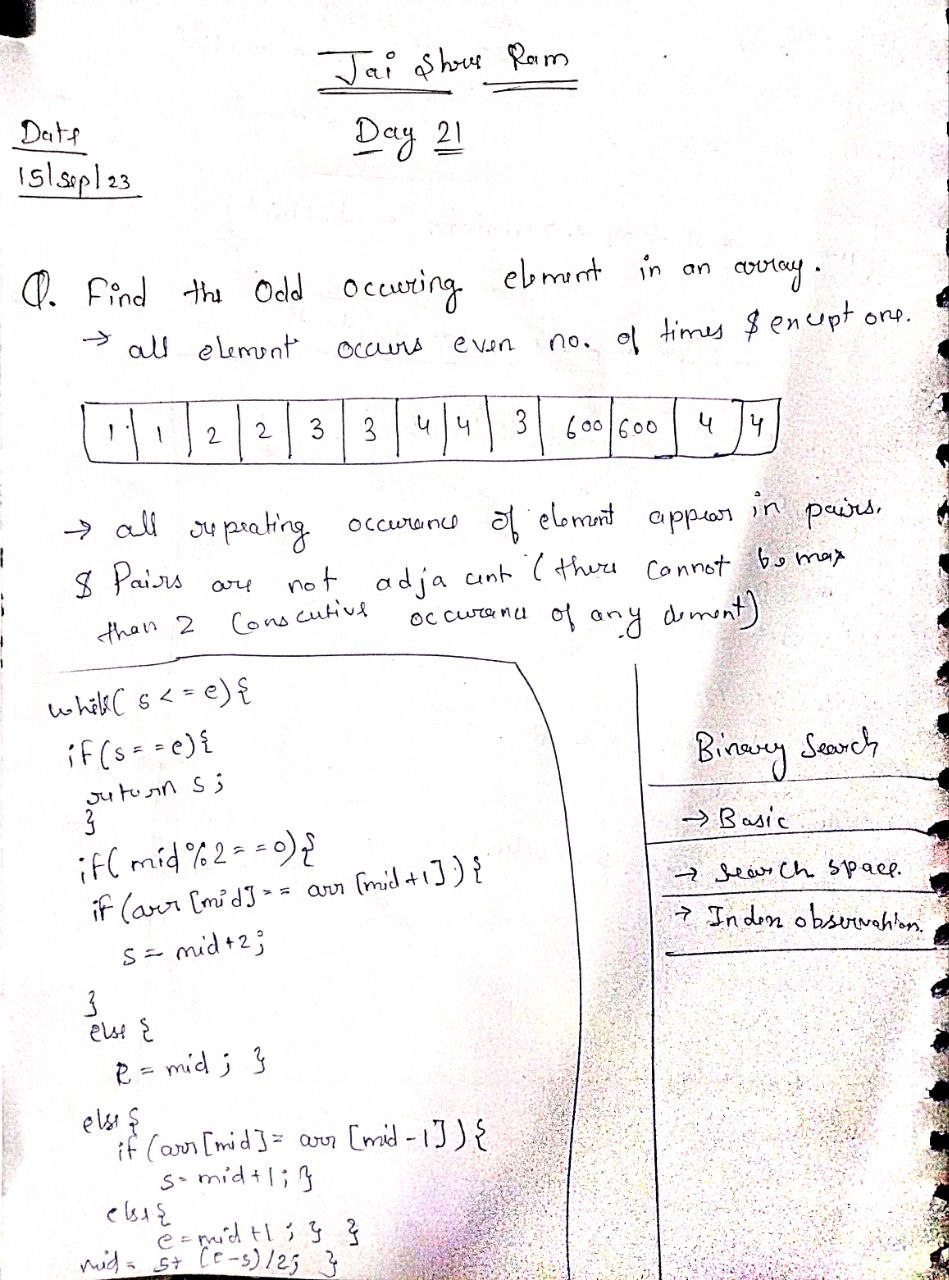 Jai Shree Ram
Day 21
Date
15/sep/23
Q. Find the Odd occuring element in an array.
→ all element occurs even no. of times & except one.
1 1 2 2 3 3 4 4 3 600 600 4 4
→ all repeating occurance of element appear in pairs.
& Pairs are not adjacent (there cannot be max
than 2 Consecutive occurance of any element)
while( s <= e) {
if(s == e){
return s;
}
if( mid%2 == 0) {
if (arr [mid] == arr [mid+1]) {
s = mid+2;
}
else {
e = mid ; }
else {
if (arr[mid] = arr [mid-1]) {
s = mid+1 ; }
else {
e = mid +1 ; } }
mid = s+ (e-s)/2; }
Binary Search
→ Basic
→ Search space.
→ Index observation.